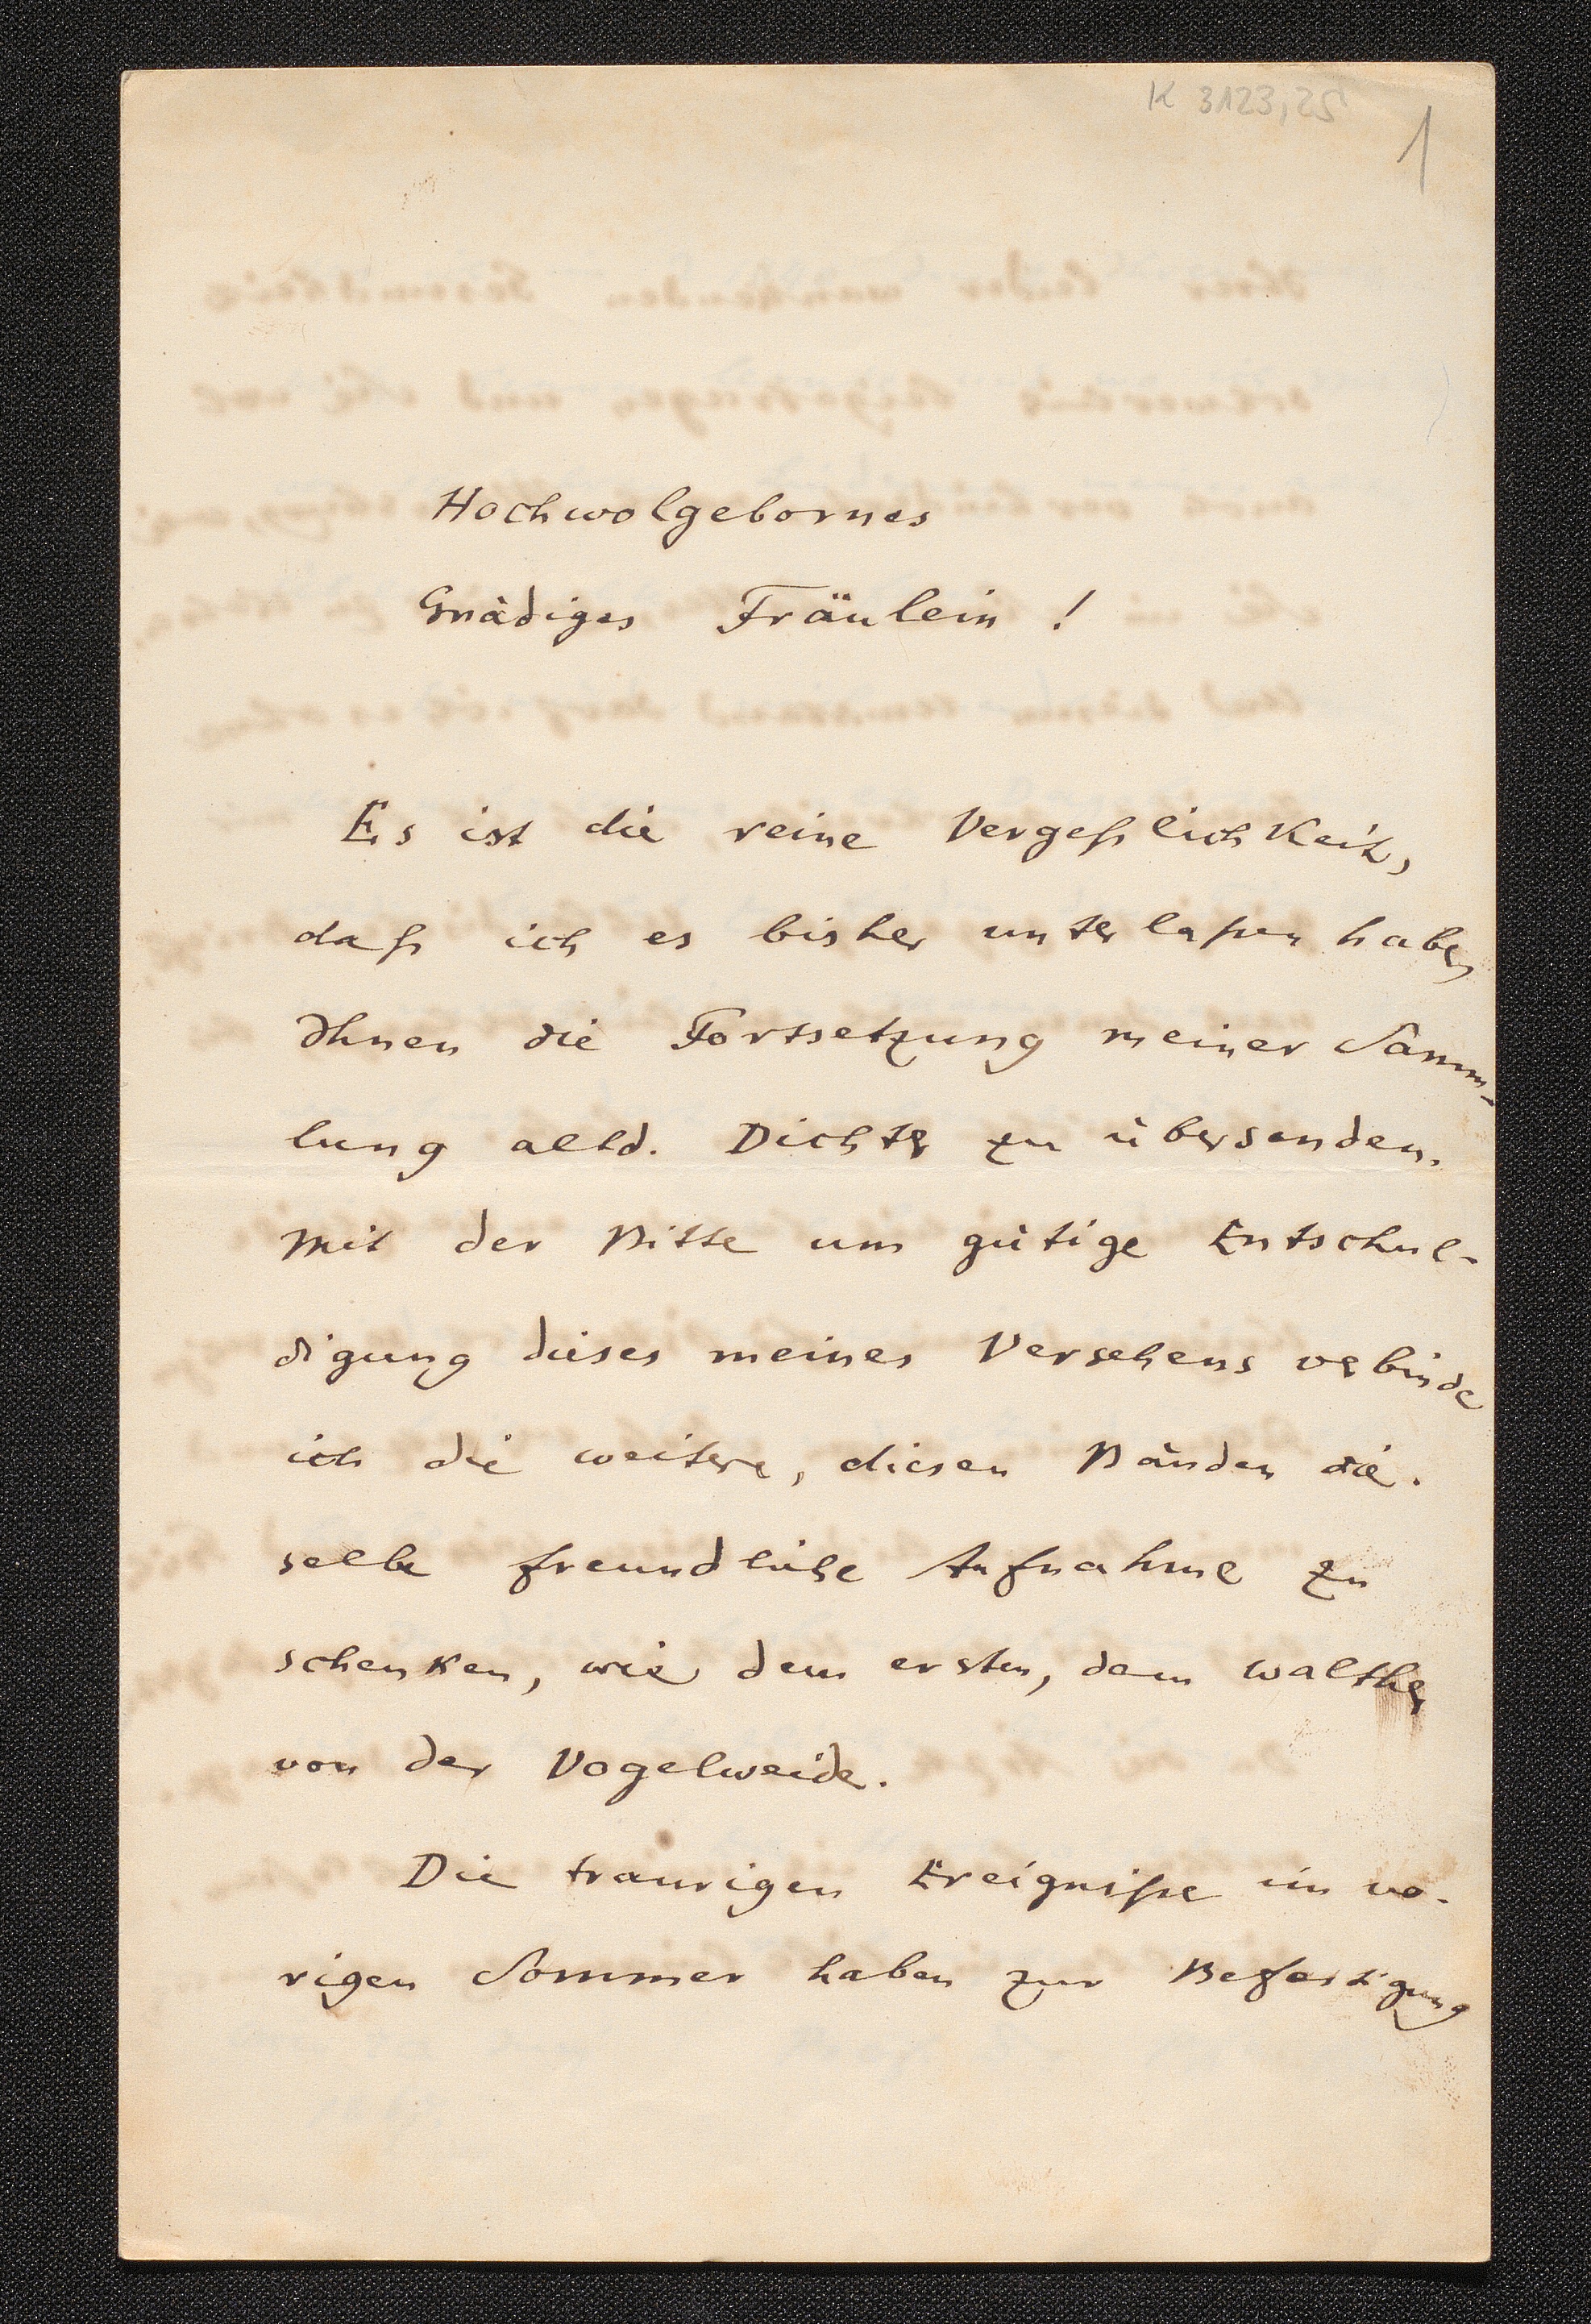 K 3123,25
1
Hochwolgebornes
Gnädiges Fräulein !
Es ist die reine Vergeßlichkeit,
daß ich es bisher unterlaßen habe,
Ihnen die Fortsetzung meiner Samm-
lung altd. Dichter zu übersenden.
Mit der Bitte um gütige Entschul-
digung dieses meines Versehens verbinde
ich die weitere, diesen Bänden die-
selbe freundliche Aufnahme zu
schenken, wie dem ersten, dem Walther
von der Vogelweide.
Die traurigen Ereigniße im vo-
rigen Sommer haben zur Befestigung